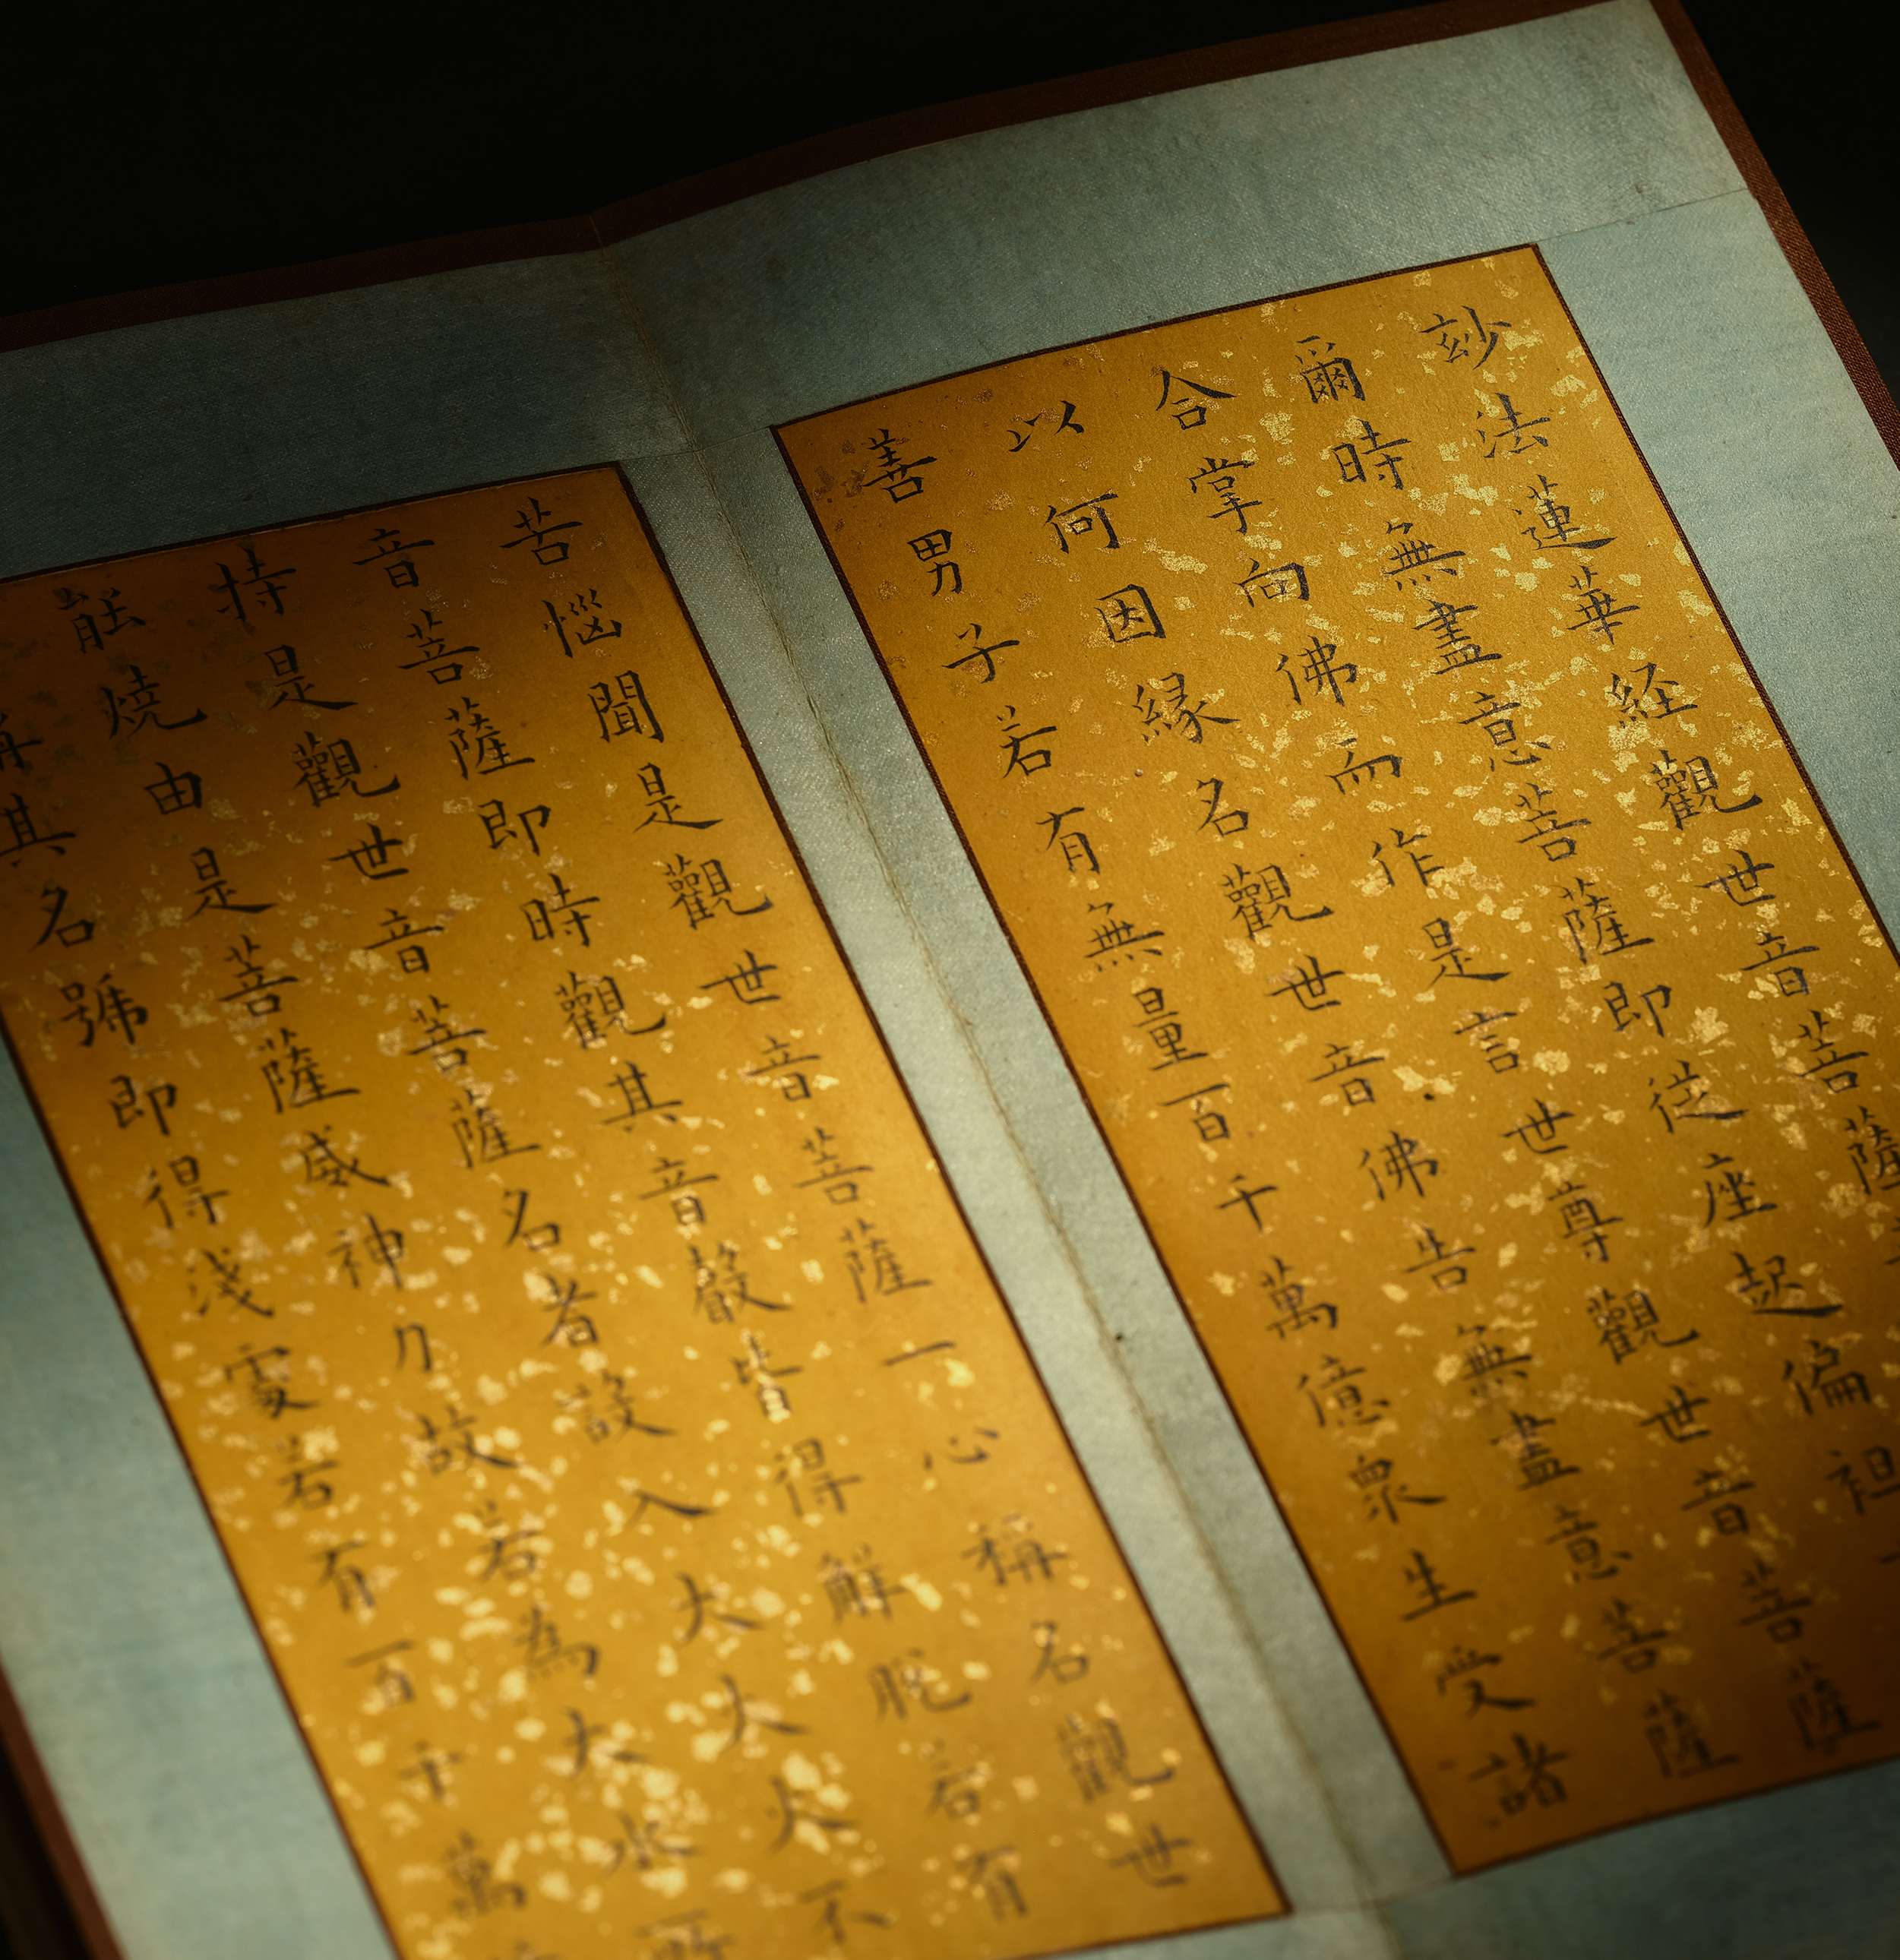 玅法蓮華経觀世音菩薩
爾時無盡意菩薩即従座起偏袒
合掌向佛而作是言世尊觀世音菩薩
以何因緣名觀世音佛告無盡意菩薩
善男子若有無量百千萬億衆生受諸
苦惱聞是觀世音菩薩一心稱名觀世
音菩薩即時觀其音聲皆得解脫若有
持是觀世音菩薩名者設入大火火不
能燒由是菩薩威神力故若為大水所
稱其名號即得淺處若有百千萬